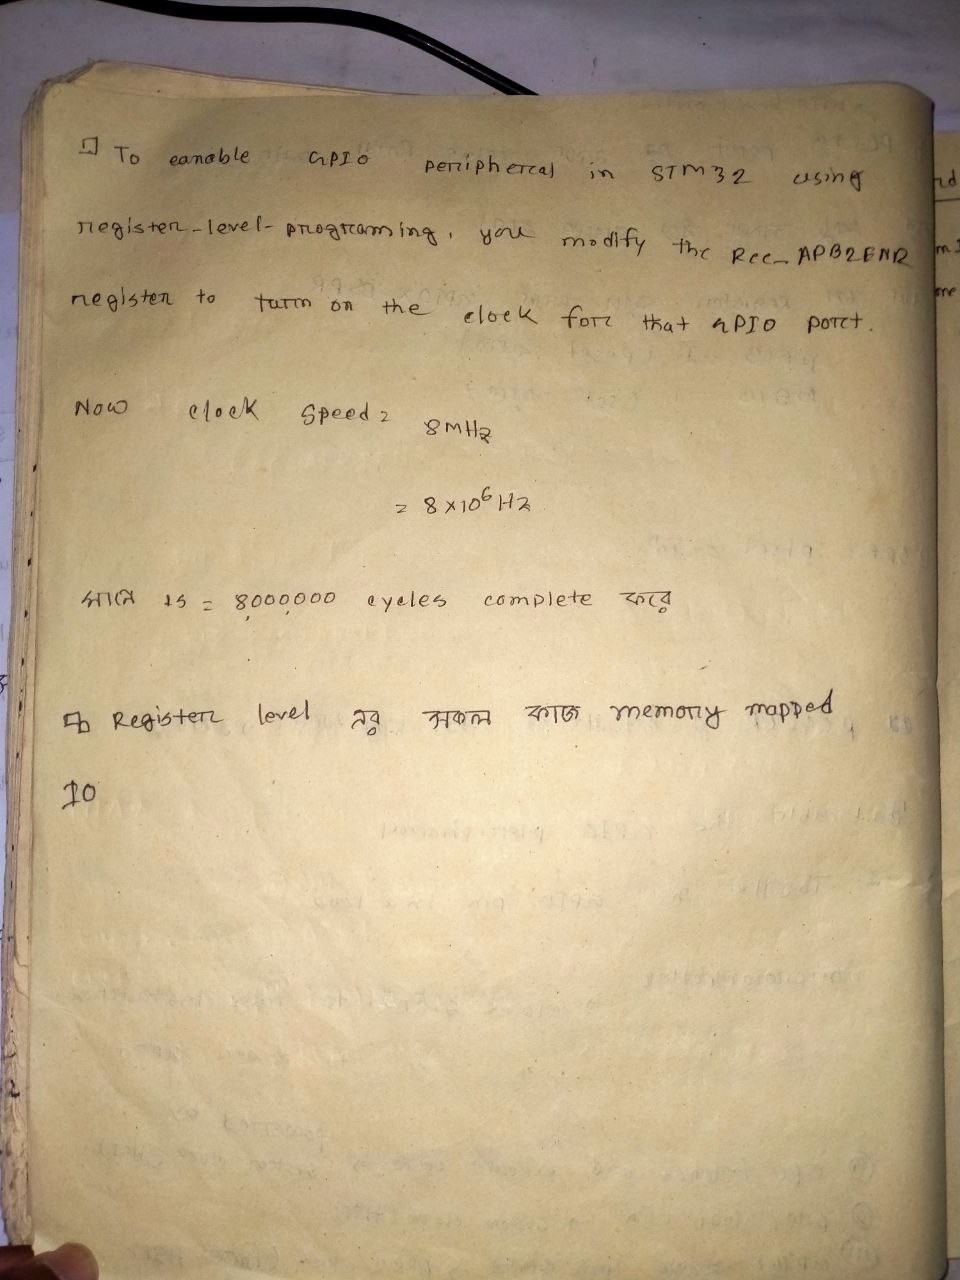 To eanable GPIO peripheral in STM32 using
register-level-programing, you modify the RCC_APB2ENR
register to turn on the clock for that GPIO port.
Now clock speed = 8MHz
= 8×10⁶ Hz
মানে 1s = 8000000 cycles complete করে
Register level এর সকল কাজ memory mapped
IO